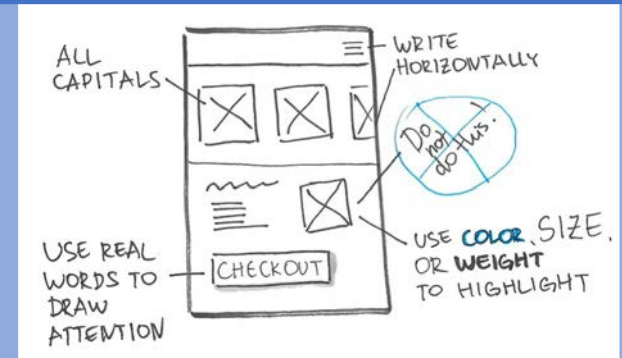 ALL
CAPITALS
WRITE
HORIZONTALLY
Do
not
do this!
USE REAL
WORDS TO
DRAW
ATTENTION
CHECKOUT
USE COLOR, SIZE,
OR WEIGHT
TO HIGHLIGHT